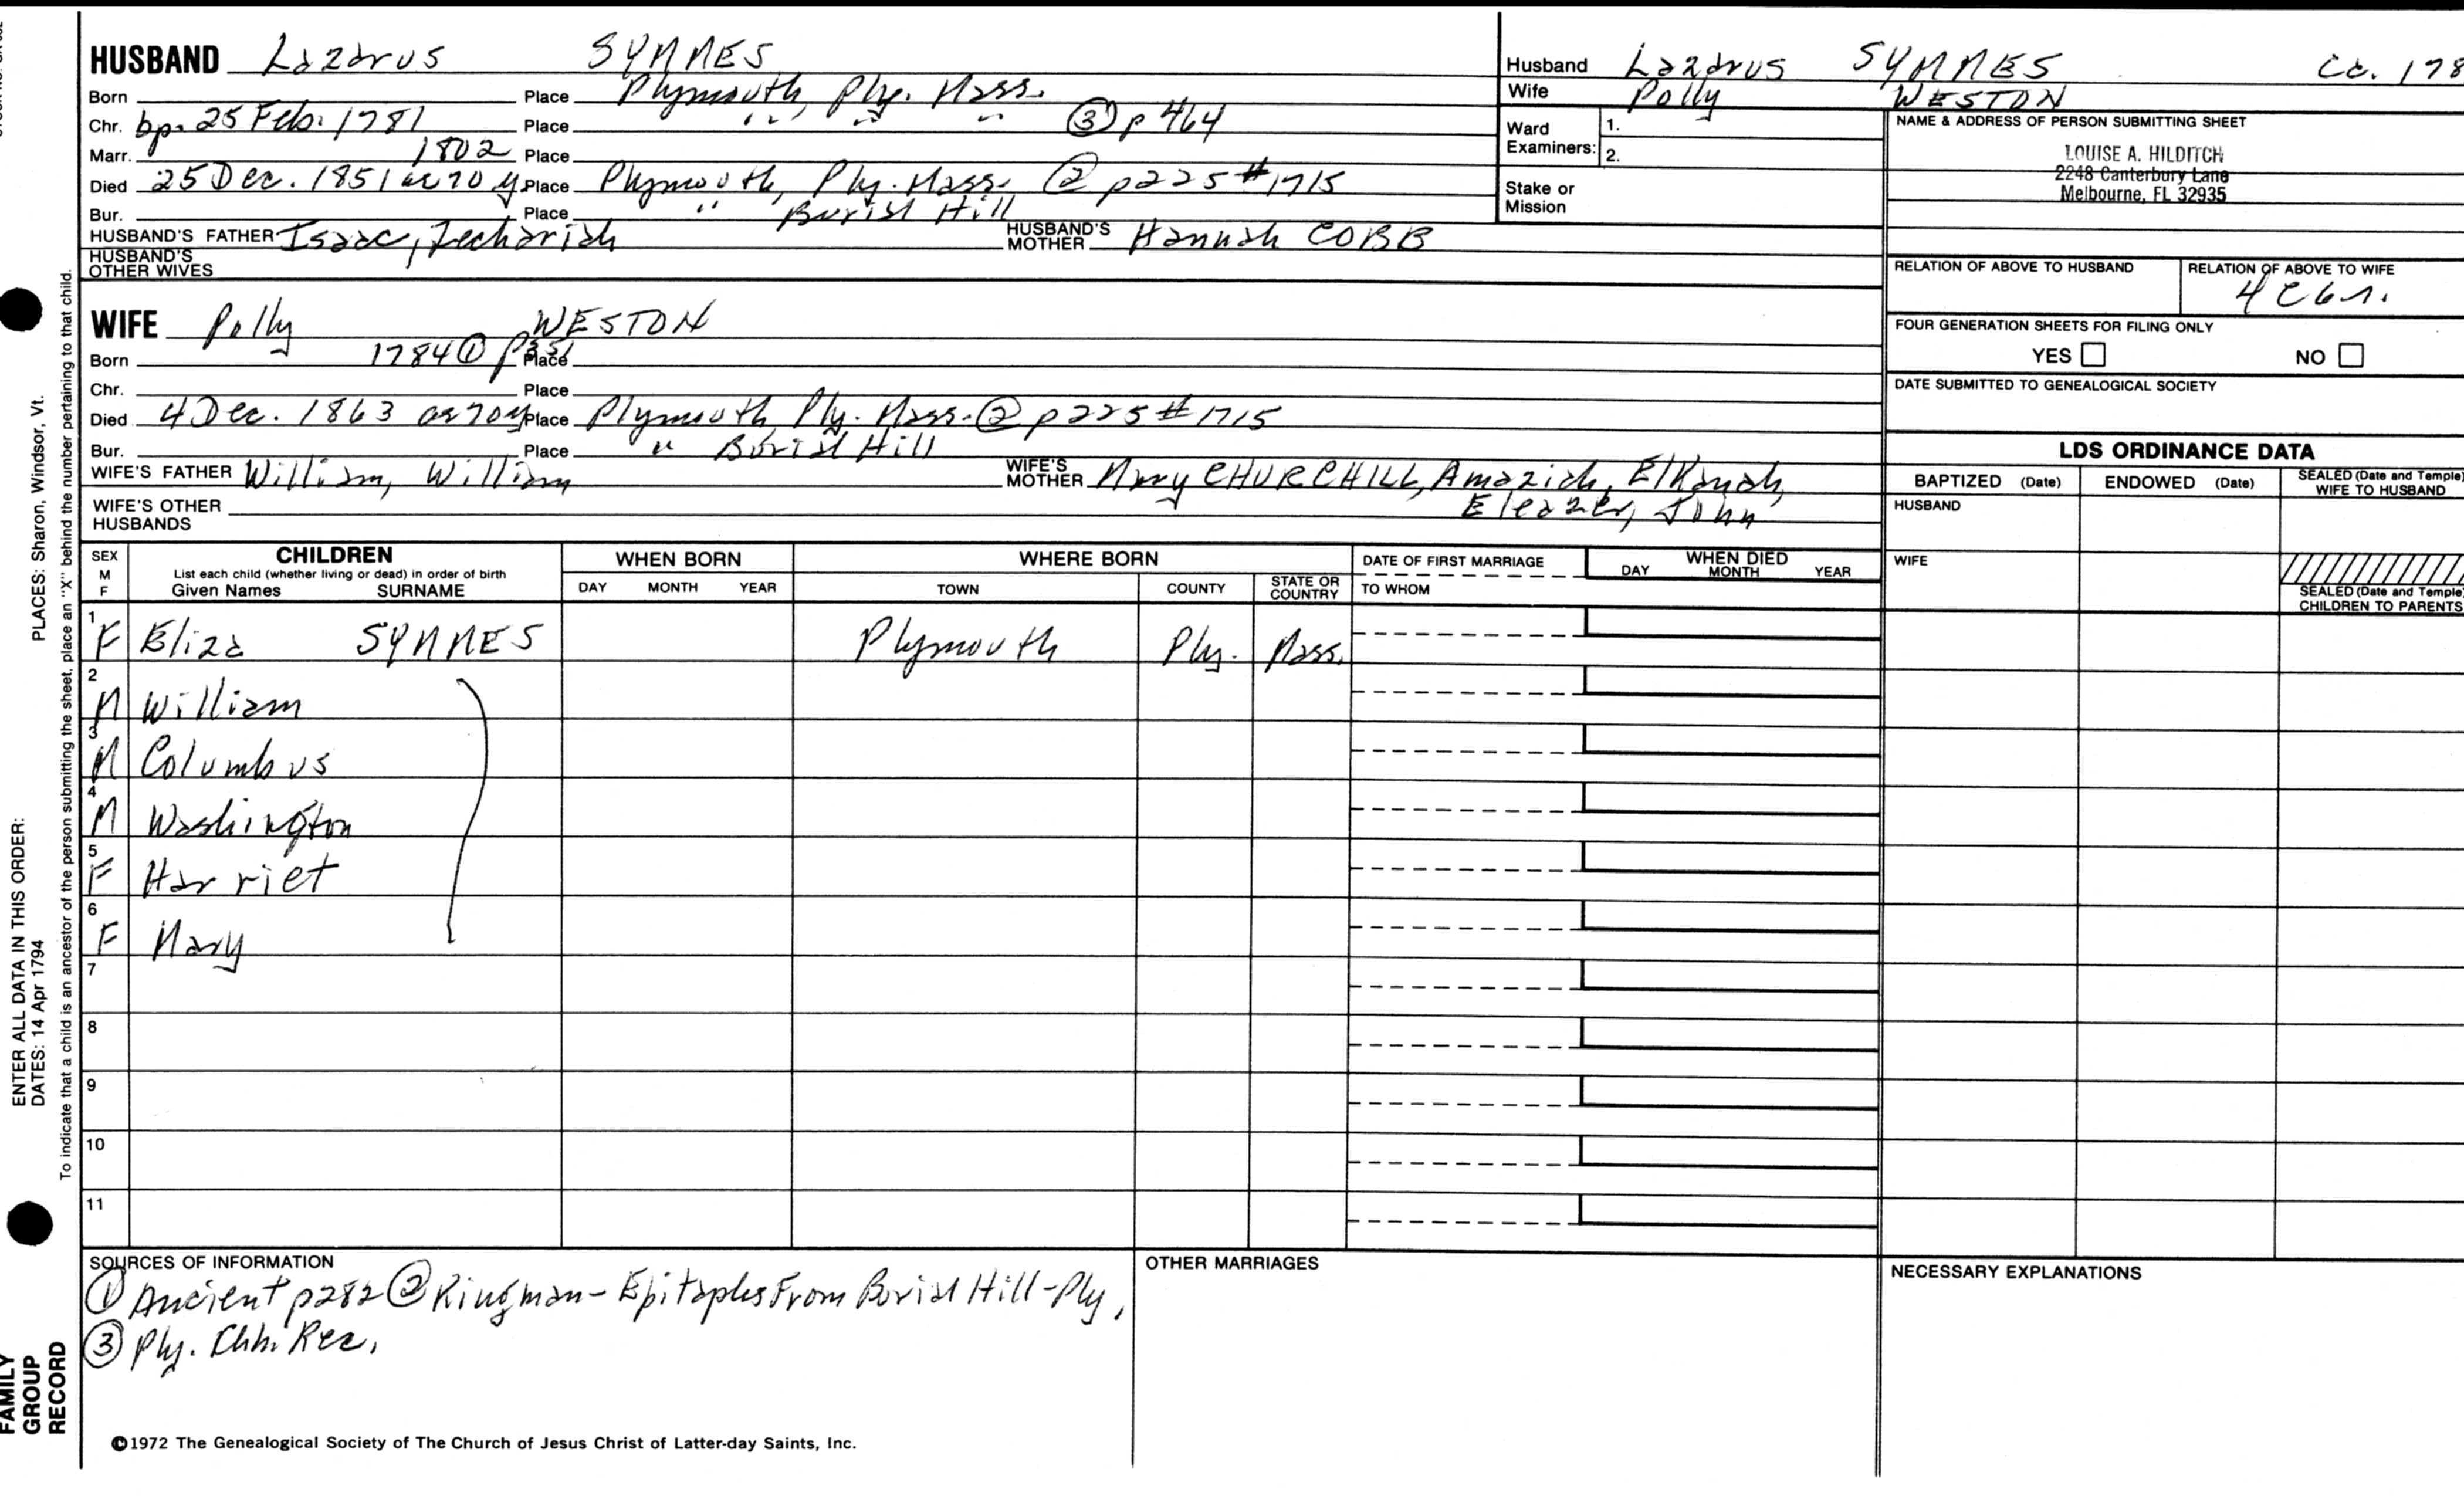 HUSBAND Lazarus SYMMES
Born Place Plymouth, Ply. Mass.
Chr. bp. 25 Feb. 1781 Place " " " ③ p 464
Marr. 1802 Place
Died 25 Dec. 1851 ae 70 y Place Plymouth, Ply. Mass. ② p 225 # 1715
Bur. Place " Burial Hill
HUSBAND'S FATHER Isaac, Zechariah HUSBAND'S MOTHER Hannah COBB
HUSBAND'S OTHER WIVES
Husband Lazarus SYMMES ca. 178
Wife Polly WESTON
Ward Examiners: 1.
2.
Stake or Mission
NAME & ADDRESS OF PERSON SUBMITTING SHEET
LOUISE A. HILDITCH
2248 Canterbury Lane
Melbourne, FL 32935
RELATION OF ABOVE TO HUSBAND RELATION OF ABOVE TO WIFE
FOUR GENERATION SHEETS FOR FILING ONLY
YES NO
DATE SUBMITTED TO GENEALOGICAL SOCIETY
WIFE Polly WESTON
Born 1784 ① Place
Chr. Place
Died 4 Dec. 1863 ae 70 y Place Plymouth Ply. Mass. ② p 225 # 1715
Bur. Place " Burial Hill
WIFE'S FATHER William, William WIFE'S MOTHER Mary CHURCHILL, Amaziah, Elkanah,
Eleazer, John
WIFE'S OTHER HUSBANDS
LDS ORDINANCE DATA
BAPTIZED (Date) ENDOWED (Date) SEALED (Date and Temple) WIFE TO HUSBAND
HUSBAND
WIFE
SEALED (Date and Temple) CHILDREN TO PARENTS
SEX M F CHILDREN WHEN BORN WHERE BORN DATE OF FIRST MARRIAGE WHEN DIED
List each child (whether living or dead) in order of birth
Given Names SURNAME DAY MONTH YEAR TOWN COUNTY STATE OR COUNTRY TO WHOM DAY MONTH YEAR
1 F Eliza SYMMES Plymouth Ply. Mass.
2 M William
3 M Columbus
4 M Washington
5 F Harriet
6 F Mary
7
8
9
10
11
SOURCES OF INFORMATION
① Ancient p282 ② Kingman - Epitaphs From Burial Hill - Ply,
③ Ply. Chh. Rec.
OTHER MARRIAGES
NECESSARY EXPLANATIONS
©1972 The Genealogical Society of The Church of Jesus Christ of Latter-day Saints, Inc.
PLACES: Sharon, Windsor, Vt.
ENTER ALL DATA IN THIS ORDER:
DATES: 14 Apr 1794
To indicate that a child is an ancestor of the person submitting the sheet, place an "X" behind the number pertaining to that child.
FAMILY
GROUP
RECORD